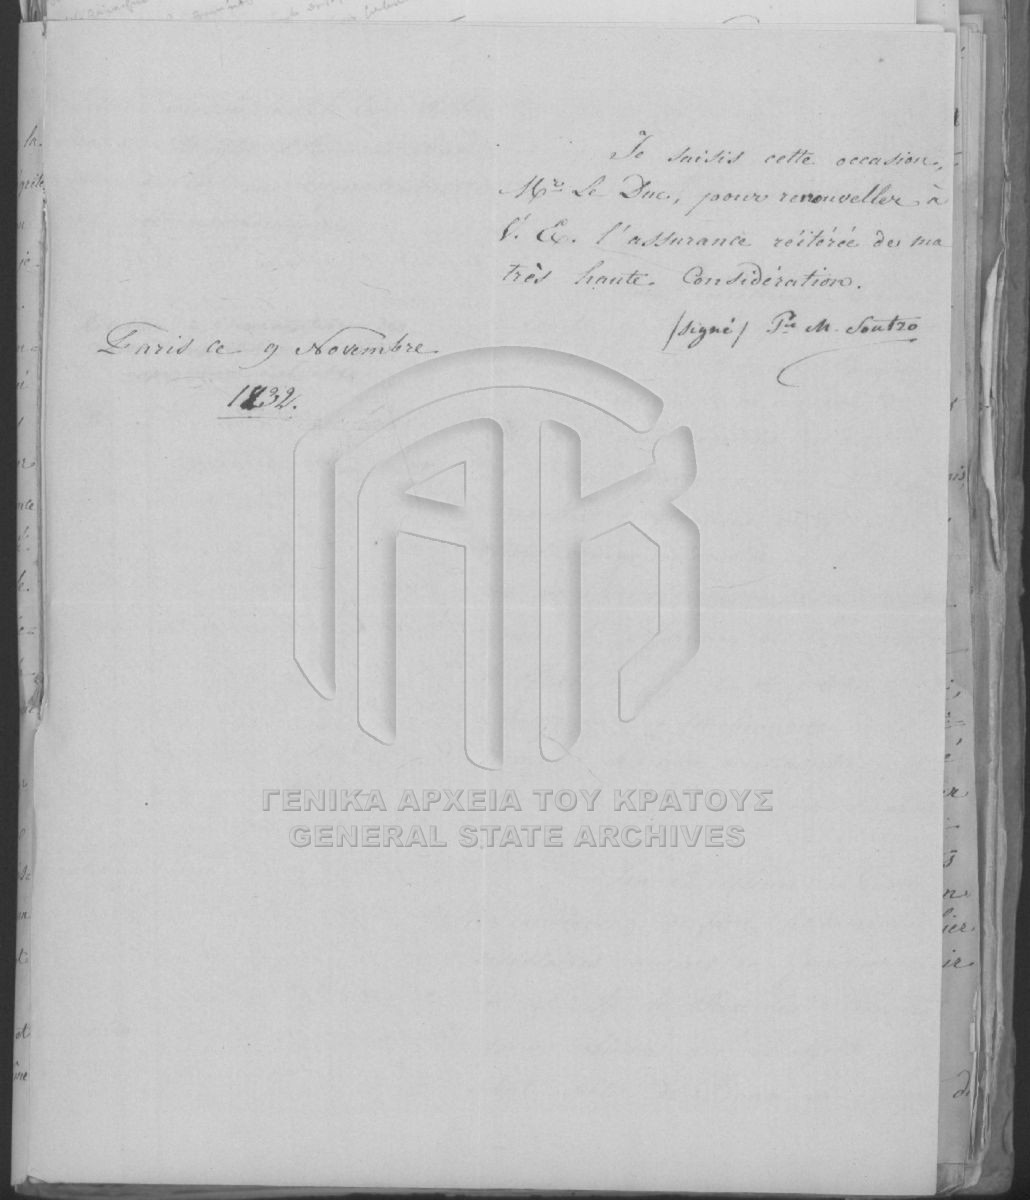 Je saisis cette occasion,
Mr. Le Duc, pour renouveller à
V. E. l'assurance réitérée de ma
très haute Considération.
/signé/ Pce M. Soutzo
Paris ce 9 Novembre
1832.
ΓΕΝΙΚΑ ΑΡΧΕΙΑ ΤΟΥ ΚΡΑΤΟΥΣ
GENERAL STATE ARCHIVES